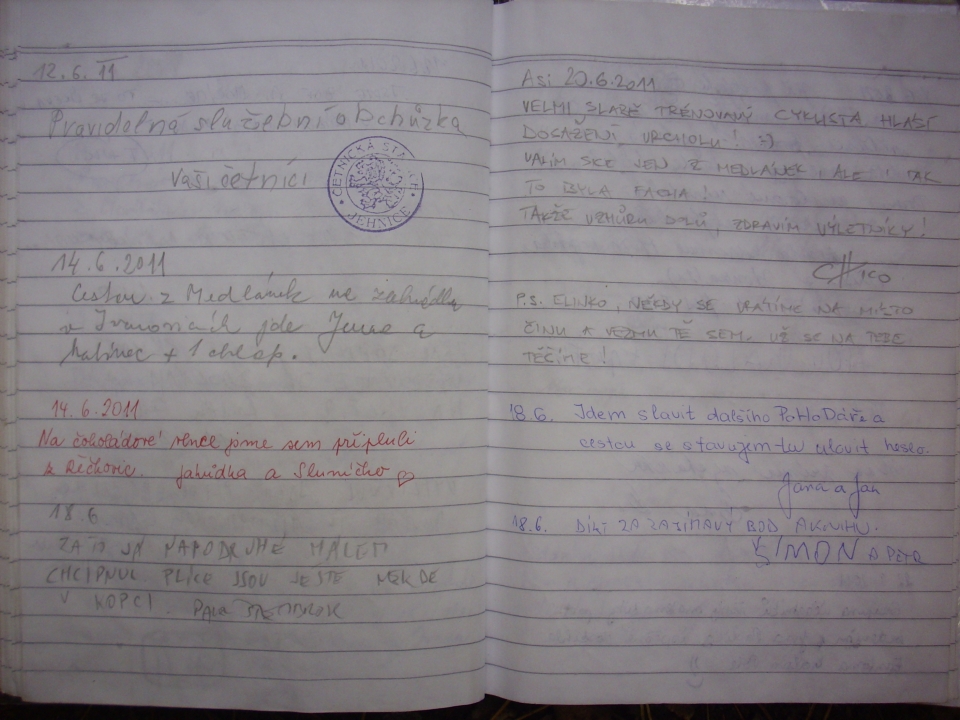 12.6.11
Pravidelná služební obchůzka
Vaši četníci
ČETNICKÁ STANICE
JEHNICE
14.6.2011
Cestou z Medlánek na zahrádku
v Ivanovicích jde Jana a
+ 1 chlap.
14.6.2011
Na čokoládové vlnce jsme sem připluli
z Řečkovic. Jahůdka a Sluníčko
18.6
ZATO JÁ NAPODRUHÉ MÁLEM
CHCIPNUL PLÍCE JSOU JEŠTĚ NĚKDE
V KOPCI.
Asi 20.6.2011
VELMI SLABĚ TRÉNOVANÝ CYKLISTA HLÁSÍ
DOSAŽENÍ VRCHOLU! :)
VALÍM SICE JEN Z MEDLÁNEK, ALE I TAK
TO BYLA FACHA!
TAKŽE VZHŮRU DOLŮ, ZDRAVÍM VÝLETNÍKY!
CHICO
P.S. ELINKO, NĚKDY SE VRÁTÍME NA MÍSTO
ČINU A VEZMU TĚ SEM. UŽ SE NA TEBE
TĚŠÍME!
18.6. Jdem slavit dalšího PoHoDáře a
cestou se stavujem tu ulovit heslo.
Jana a Jan
18.6. DÍKY ZA ZAJÍMAVÝ BOD A KNIHU.
ŠIMON A PETR